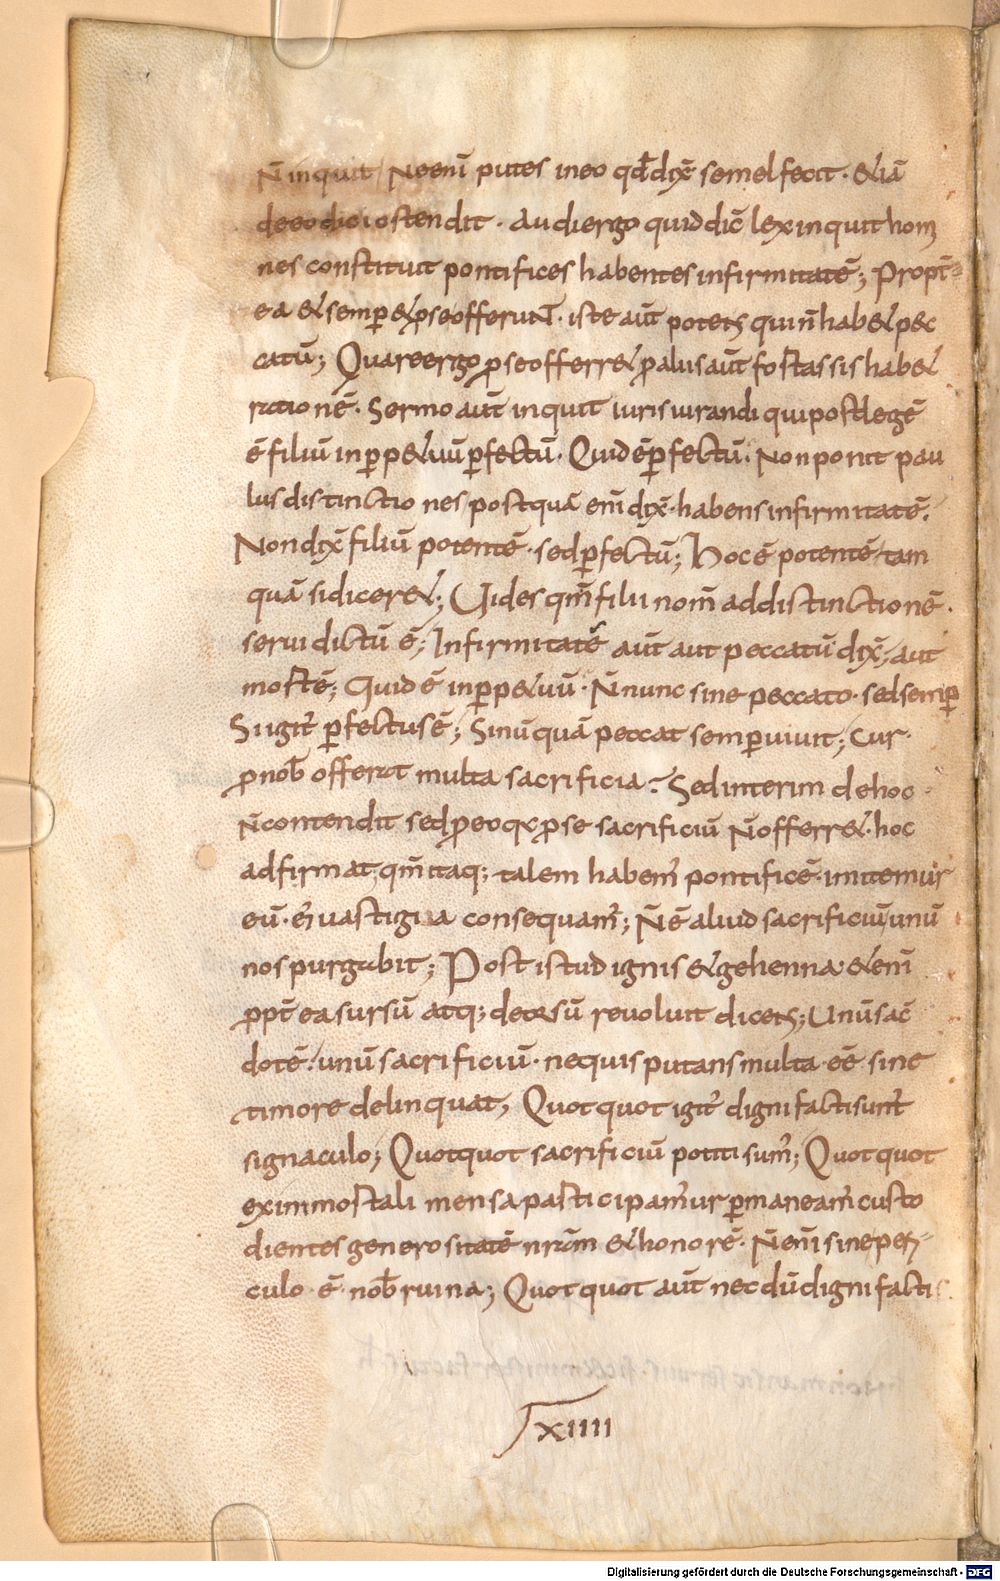 N̄ inquit Neenī putes ineo qđ dix̄ semel fecit · &iā
deeodicio ostendit · Audi ergo quid dic̄ lex inquit hom
nes constituit pontifices habentes infirmitatē; Propt̄
ea & semp & pseofferunt · iste aūt potens qui n̄ hab& pec
catū; Quare ergo pse offerr& paluis aūt fortassis hab&
rationē · Sermo aūt inquit iurisiurandi qui post legē
ē filiū inpp&uū pfectū · Quid ē pfectū · Non ponit pau
lus distinctiones postquā enī dix̄ · habens infirmitatē.
Non dix̄ filiū potentē · sed pfectū; Hoc ē potentē tam
quā si dicer&; Uides qm̄ filii nom̄ ad distinctionē ·
serui dictū ē; Infirmitatē aūt aut peccatū dix̄, aut
mortē; Quid ē inpp&uū · N̄ nunc sine peccato · sed semp
Si igit̄ pfectus ē; Sinūquā peccat semp uiuit; cur ·
pnob̄ offerat multa sacrificia? Sed interim de hoc ·
n̄ contendit sed peo qđ pse sacrificiū n̄ offerr& · hoc
adfirmat, qm̄ itaq; talem habem̄ pontificē · imitemur
eū · & uastigia consequam̄; N̄ ē aliud sacrificiū unū
nos purgabit; Post istud ignis & gehenna · & enī
ppt̄ ea sursū atq; deorsū reuoluit dicens; Unū sac̄
dotē · unū sacrificiū · ne quis putans multa eē sine
timore delinquat, Quotquot igit̄ digni facti sunt
signaculo; Quotquot sacrificiū potiti sum̄; Quotquot
ex immortali mensa participam̄ur pmaneam̄ custo
dientes generositatē nr̄am & honorē · N̄ enī sine peri
culo · ē · nob̄ ruina; Quotquot aūt nec dū digni facti
xiiii
Digitalisierung gefördert durch die Deutsche Forschungsgemeinschaft - DFG